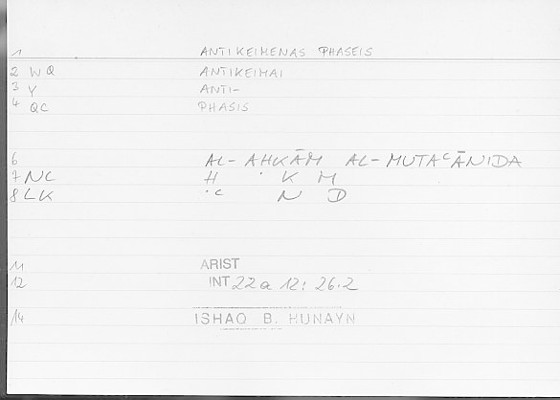 1 ANTIKEIMENAS PHASEIS
2 WQ ANTIKEIMAI
3 Y ANTI-
4 QC PHASIS
6 AL-AHKĀM AL-MUTAᶜĀNIDA
7 NC H K M
8 LK ᶜ N D
11 ARIST
12 INT 22a 12: 26.2
14 ISHAQ B. HUNAYN